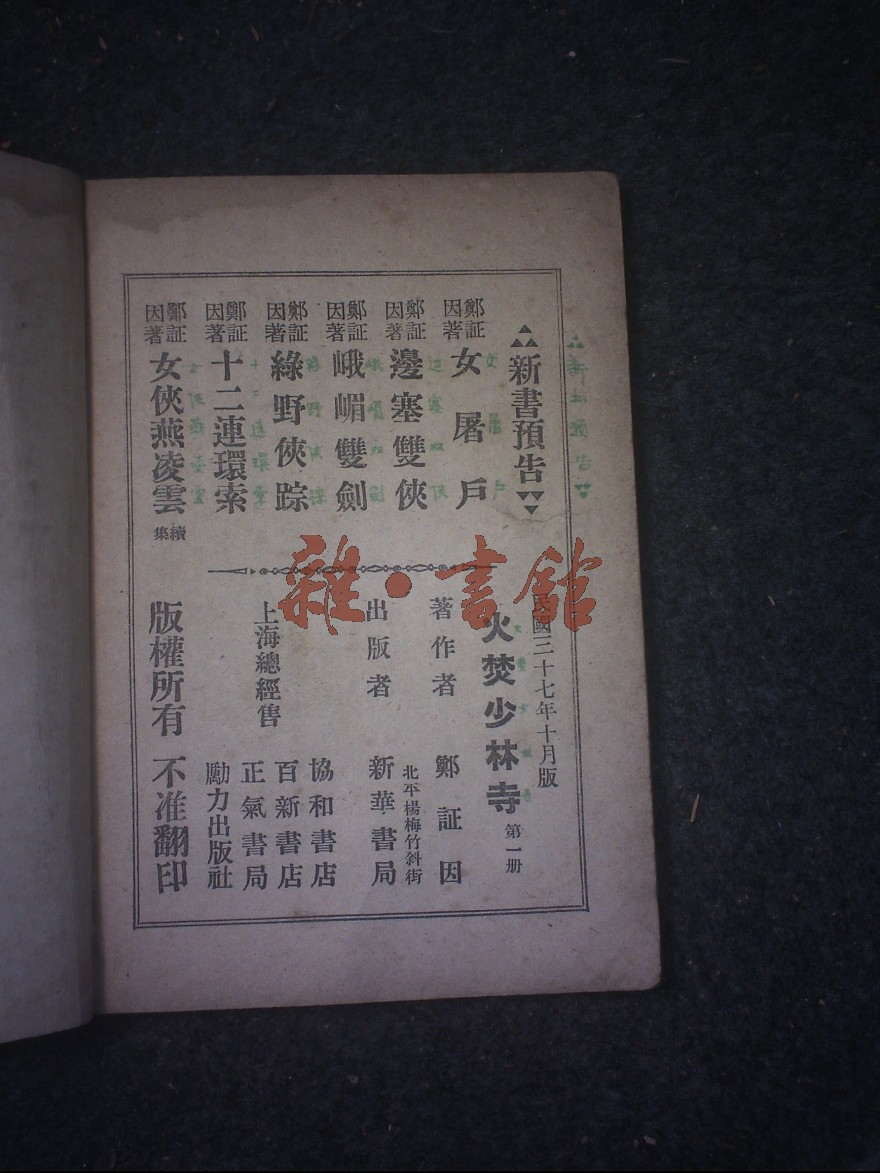 新書預告
鄭証因著 女屠戶
鄭証因著 邊塞雙俠
鄭証因著 峨嵋雙劍
鄭証因著 綠野俠踪
鄭証因著 十二連環索
鄭証因著 女俠燕凌雲 續集
民國三十七年十月版
火焚少林寺 第一册
著作者 鄭証因
北平楊梅竹斜街
出版者 新華書局
上海總經售
協和書店
百新書店
正氣書局
勵力出版社
版權所有 不准翻印
雜·書館